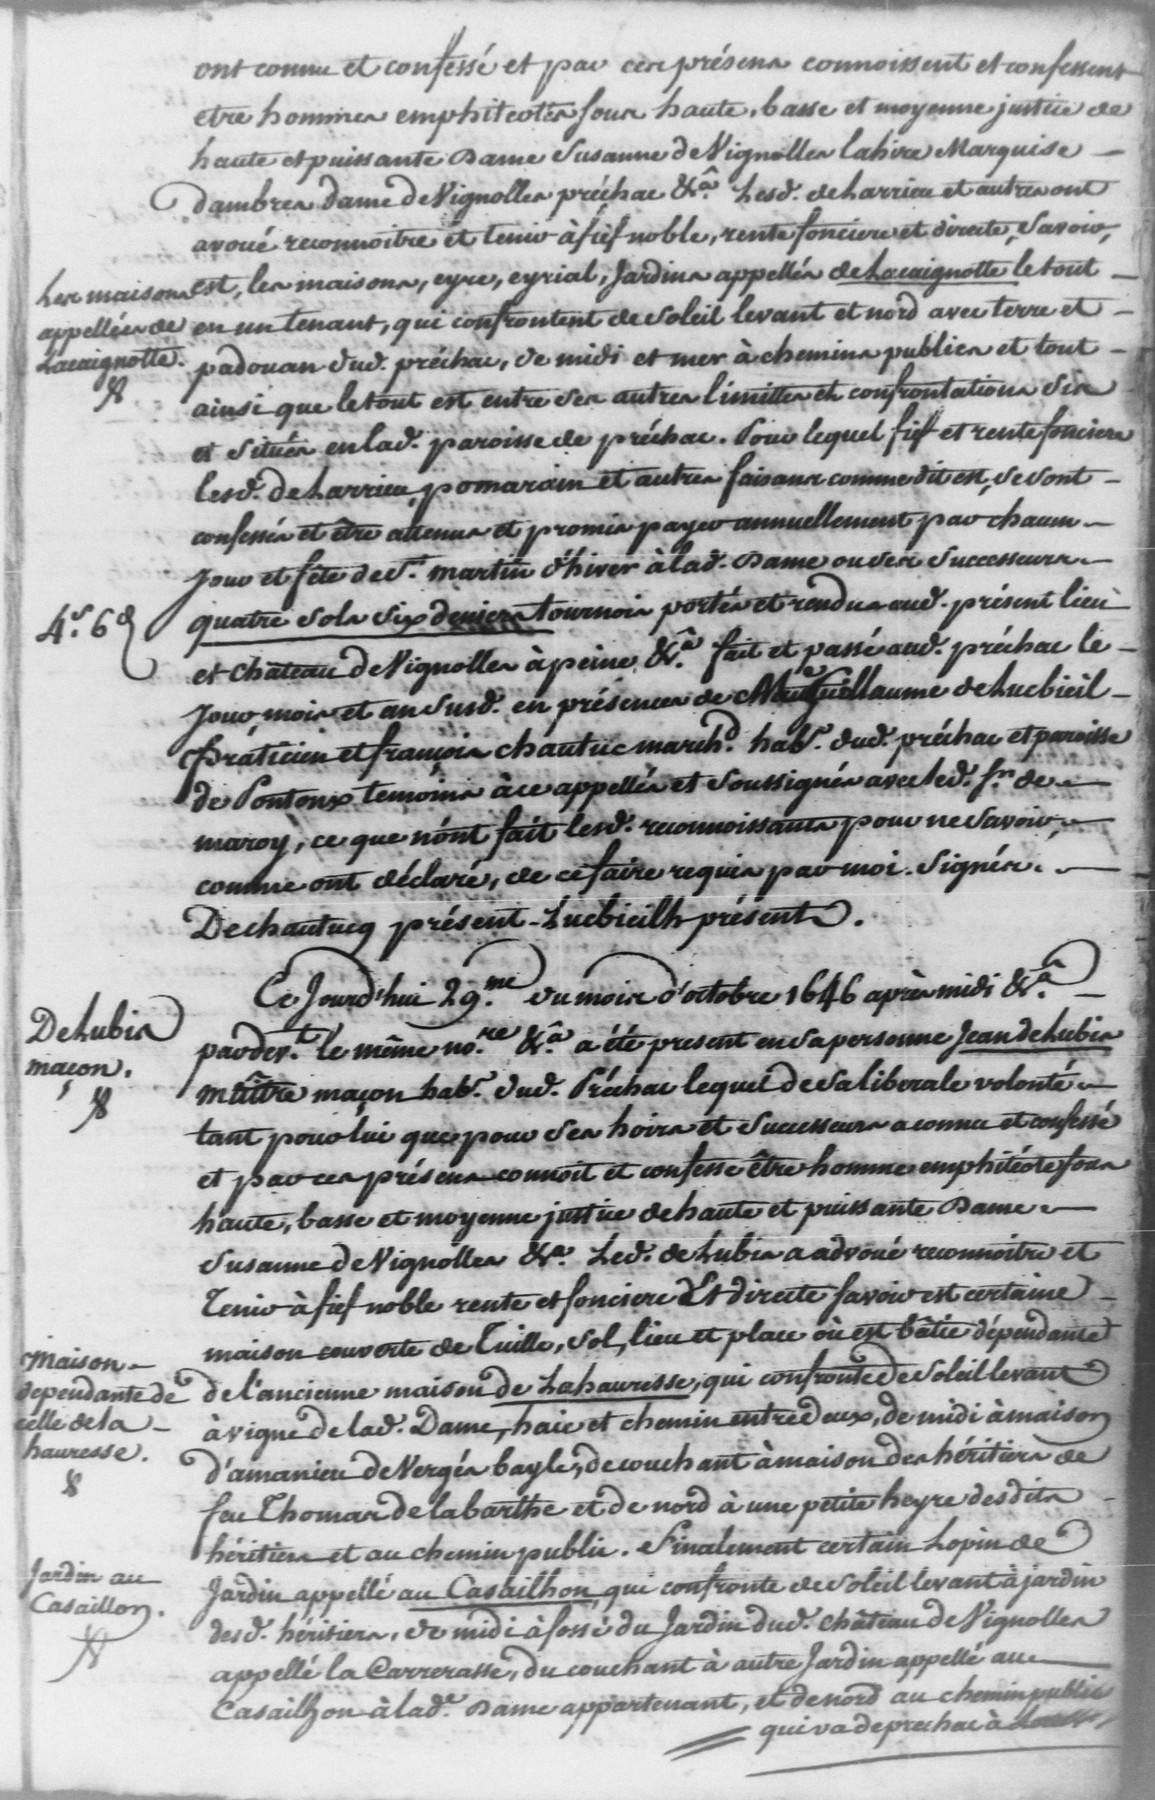 ont connu et confessé et par ces présens connoissent et confessent
etre hommes emphiteotes sous haute, basse et moyenne justice de
haute et puissante Dame Susanne de Vignolles lahire Marquise
Dambres dame de Vignolles préchac &a. Lesd. de Larrieu et autres ont
avoué reconnoitre et tenir à fief noble, rente fonciere et directe, Savoir,
est, les maisons, eyre, eyrial, Jardins appellés de Lacaignotte le tout
en un tenant, qui confrontent de Soleil levant et nord avec terre et
padouan dud. préchac, de midi et mer à chemins publics et tout
ainsi que le tout est entre ses autres limittes et confrontations Sis
et Situés en lad. paroisse de préchac. Pour lequel fief et rente fonciere
lesd. de Larrieu, pomarain et autres faisant comme dit est, se sont
confessés et être attenus et promis payer annuellement par chacun
Jour et fête de St. martin d'hiver à lad. Dame ou ses Successeurs
quatre sols Six deniers tournois portés et rendus aud. présent lieu
et Château de Vignolles à peine, &a. fait et passé aud. préchac le
Jour mois et an Susd. en présences de Me Guillaume de Lucbieil
Praticien et françois chantuc march.d hab.t dud. préchac et paroisse
de Pontonx temoins à ce appellés et Soussignés avec led. Sr. de
maroy, ce que n'ont fait lesd. reconnoissants pour ne Savoir,
comme ont déclaré, de ce faire requis par moi. Signés.
Dechantucq présent - Lucbieilh présent.
Ce Jourd'hui 29.me du mois d'octobre 1646 après midi &a.
pardev.t le même no.re &a a été present en sa personne Jean de Lubis
maître maçon hab.t dud. Préchac lequel de sa liberale volonté
tant pour lui que pour ses hoirs et Successeurs a connu et confessé
et par ces présens connoit et confesse être homme emphitéote sous
haute, basse et moyenne justice de haute et puissante Dame
Susanne de Vignolles &a. Led. de Lubis a advoué reconnoitre et
Tenir à fief noble rente et fonciere Et directe savoir est certaine
maison couverte de Tuille, Sol, lieu et place où est bâtie dépendante
de l'ancienne maison de Lahauresse, qui confronte de Soleil levant
à vigne de lad. Dame, haie et chemin entre deux, de midi à maison
d'amanieu de Vergés bayle, de couchant à maison des héritiers de
feu Thomas de labarthe et de nord à une petite heyre desdits
héritiers et au chemin public. Finalement certain Lopin de
Jardin appellé au Casailhon, qui confronte de Soleil levant à jardin
desd. héritiers, de midi à fossé du Jardin dud. château de Vignolles
appellé la Carrerasse, du couchant à autre Jardin appellé au
Casailhon à lad.e Dame appartenant, et de nord au chemin public
qui va de prechac à
Les maisons
appellées de
Lacaignotte.
4s. 6d
De Lubis
maçon.
Maison
dependante de
celle de la
hauresse.
Jardin au
Casaillon.